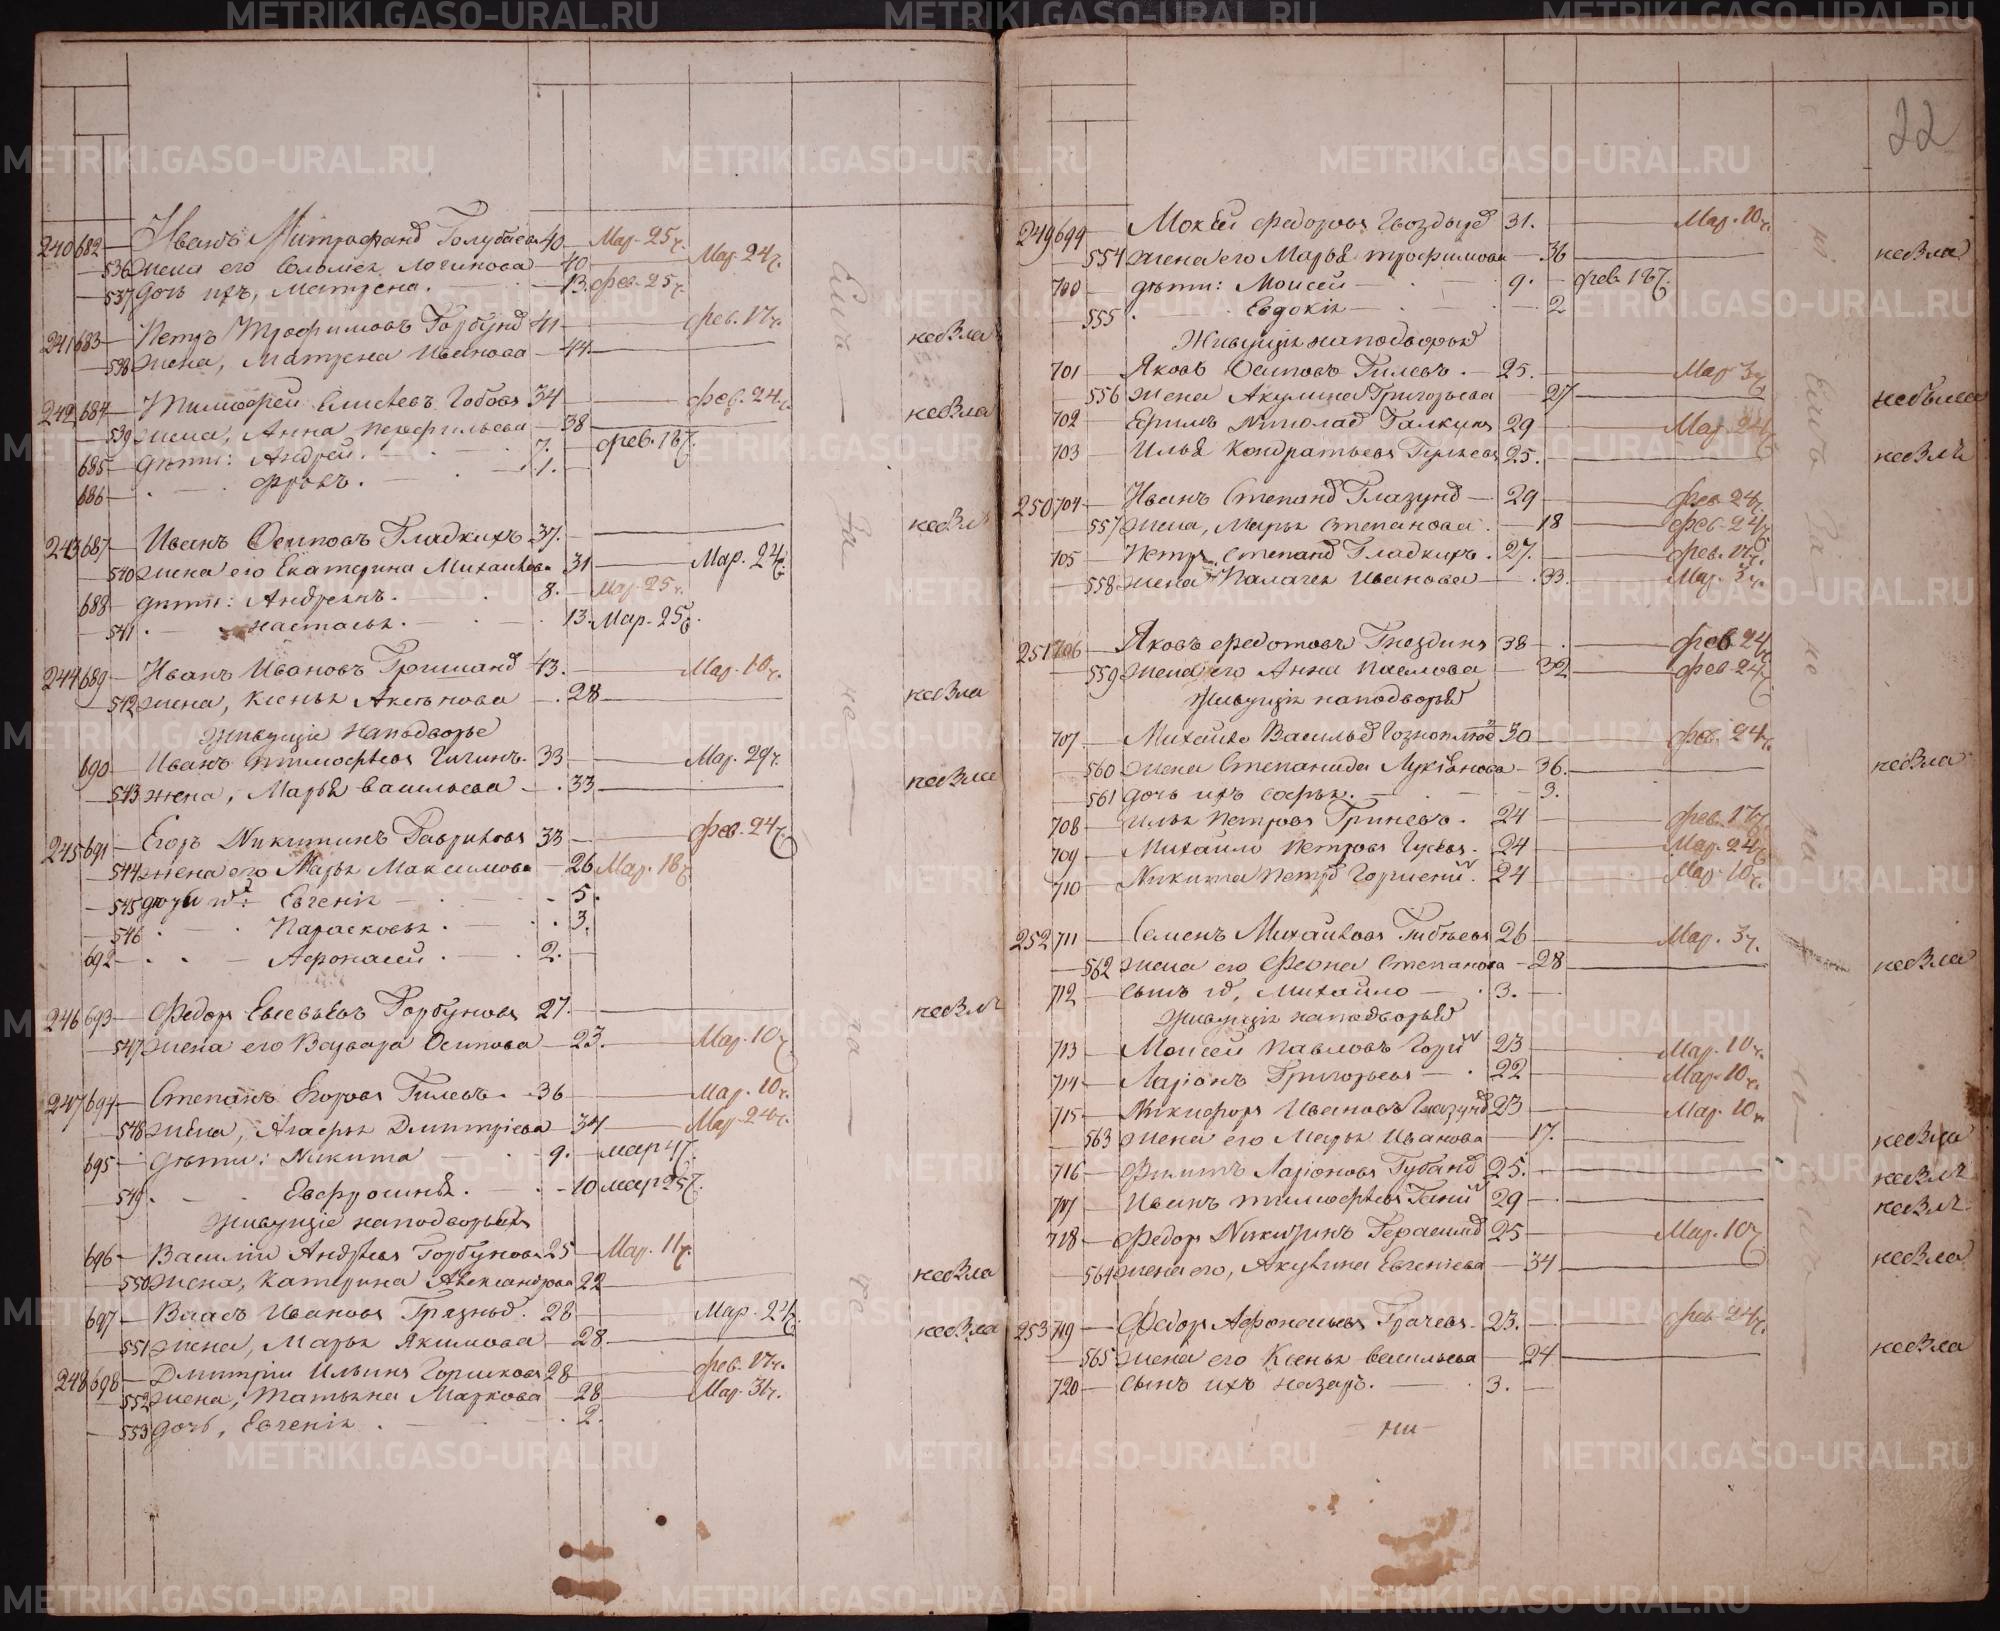 240 682 Иванъ Митрофанъ Голубаев 40 Мар. 25 ч.
536 жена его Соломея Логинова 40 Мар. 24 ч.
537 дочь ихъ, Матрена. 13. фев. 25 ч.
241 683 Петръ Трофимовъ Горбунъ 41 фев. 17 ч.
538 жена, Матрена Иванова 44. небыла
242 684 Тимофей Елисѣевъ 34 фев. 24 ч.
539 жена, Анна 38 небыла
685 дѣти: Андрей. 7. фев. 18 ч.
686 Фролъ. 1.
243 687 Иванъ Осиповъ Гладкихъ 37. небылъ
540 жена его Екатерина Михайлова 31 Мар. 24 ч.
688 дѣти: Андреянъ. 8. Мар. 25 ч.
541 настасья. 13. Мар. 25 ч.
244 689 Иванъ Ивановъ 43. Мар. 10 ч.
542 жена, Ксенья 28 небыла
Живущіе наподворье
690 Иванъ тимофѣев 33 Мар. 29 ч.
543 жена, Марья васильева 33 небыла
245 691 Егоръ Никитинъ Гавриловъ 33 фев. 24 ч.
544 жена его Марья Максимова 26 Мар. 18 ч.
545 Евгенія 5.
546 Парасковья. 3.
692 Афонасей. 2.
246 693 Федоръ Евсевьевъ Горбуновъ 27. небылъ
547 жена его Варвара Осипова 23. Мар. 10 ч.
247 694 Степанъ Егоровъ Гилевъ. 36 Мар. 10 ч.
548 жена, Агафья Дмитріева 34 Мар. 24 ч.
695 дѣти: Никита 9. мар 4 ч.
549 Евфросинья. 10 мар 25 ч.
Живущіе наподворьяхъ
696 Василій Андрѣевъ Горбуновъ 25 Мар. 11 ч.
550 жена, Катерина Александрова 22 небыла
697 Власъ Ивановъ Грязныъ. 28 Мар. 24 ч.
551 жена, Марья Якимова 28 небыла
248 698 Дмитрій Ильинъ Горшковъ 28 фев. 17 ч.
552 жена, Татьяна Маркова 28 Мар. 31 ч.
553 дочь, Евгенія. 2.
22
249 699 Мокѣй федоровъ 31. Мар. 10 ч.
554 жена его Марья трофимова 36 небыла
700 дѣти: Моисей 9. фев. 18 ч.
555 Евдокія 2
Живущія наподворье
701 Яковъ Осиповъ Гилевъ. 25. Мар. 3 ч.
556 жена Акулина Григорьева 27 небыла
702 Галкинъ 29 Мар. 24 ч.
703 Илья Кондратьевъ 25. небылъ
250 704 Иванъ Степанъ Глазунъ 29 фев. 24 ч.
557 жена, Марья Степанова. 18 фев. 24 ч.
705 Петръ Степанъ Гладкихъ. 27. фев. 17 ч.
558 жена Палагея Иванова 33. Мар. 3 ч.
251 706 Яковъ федотовъ Гнездинъ 38 фев 24 ч.
559 жена его Анна Павлова 32 фев 24 ч.
Живущія наподворье
707 Михайло Василье 30 фев. 24 ч.
560 жена Степанида Лукіанова 36. небыла
561 дочь ихъ софья. 3.
708 илья Петровъ Гриневъ. 24 фев. 17 ч.
709 Михайло Петровъ Гусевъ. 24 Мар. 24 ч.
710 Никита Петръ 24 Мар. 10 ч.
252 711 Семенъ Михайловъ 26 Мар. 3 ч.
562 жена его Феона Степанова 28 небыла
712 сынъ Михайло 3.
Живущія наподворье
713 Моисей Павловъ 23 Мар. 10 ч.
714 Ларіонъ Григорьевъ 22 Мар. 10 ч.
715 Никифоръ Ивановъ Глазунъ 23 Мар. 10 ч.
563 жена его Марья Иванова 17. небыла
716 Филипъ Ларіоновъ Губанъ 25. небылъ
717 Иванъ тимофѣевъ 29 небылъ
718 Федоръ Никитинъ Герасимъ 25 Мар. 10 ч.
564 жена его, Акулина Евгеніева 34 небыла
253 719 Федоръ Афонасьевъ Грачевъ. 23. фев 24 ч.
565 жена его Ксенья васильева 24 небыла
720 сынъ ихъ назаръ. 3.
METRIKI.GASO-URAL.RU